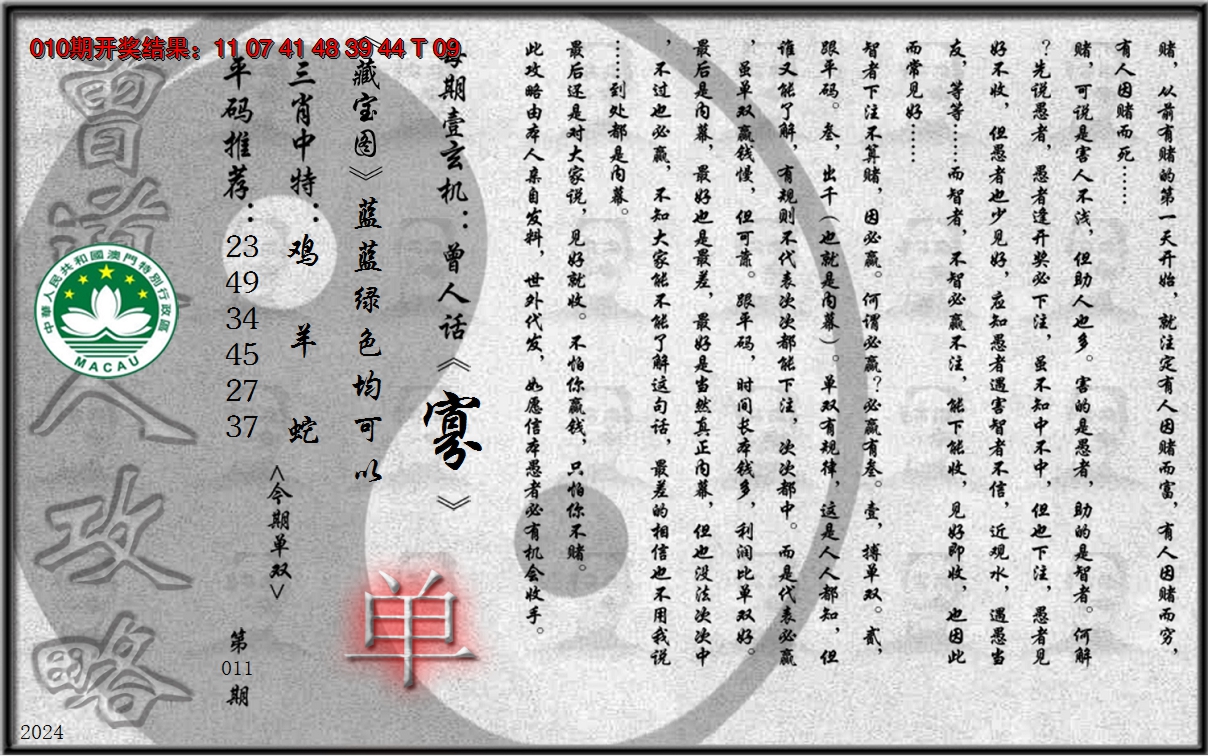 010期开奖结果：11 07 41 48 39 44 T 09
赌，从前有赌的第一天开始，就注定有人因赌而富，有人因赌而穷，
有人因赌而死……
赌，可说是害人不浅，但助人也多。害的是愚者，助的是智者。何解
？先说愚者，愚者逢开奖必下注，虽不知中不中，但也下注，愚者见
好不收，但愚者也少见好，应知愚者遇害智者不信，近观水，遇愚当
友，等等……而智者，不智必赢不注，能下能收，见好即收，也因此
而常见好……
智者下注不算赌，因必赢。何谓必赢？必赢有叁。壹，搏单双。贰，
跟平码。叁，出千（也就是内幕）。单双有规律，这是人人都知，但
谁又能了解，有规则不代表次次都能下注，次次都中。而是代表必赢
，虽单双赢钱慢，但可靠。跟平码，时间长本钱多，利润比单双好。
最后是内幕，最好也是最差，最好是当然真正内幕，但也没法次次中
，不过也必赢，不知大家能不能了解这句话，最差的相信也不用我说
……到处都是内幕。
最后还是对大家说，见好就收。不怕你赢钱，只怕你不赌。
此攻略由本人亲自发料，世外代发，如愿信本愚者必有机会收手。
每期壹玄机：曾人话《寡》
《藏宝图》蓝蓝绿色均可以
单
三肖中特：鸡 羊 蛇
<今期单双>
平码推荐：
23
49
34
45
27
37
第
011
期
曾道人攻略
中華人民共和國澳門特別行政區
MACAU
2024